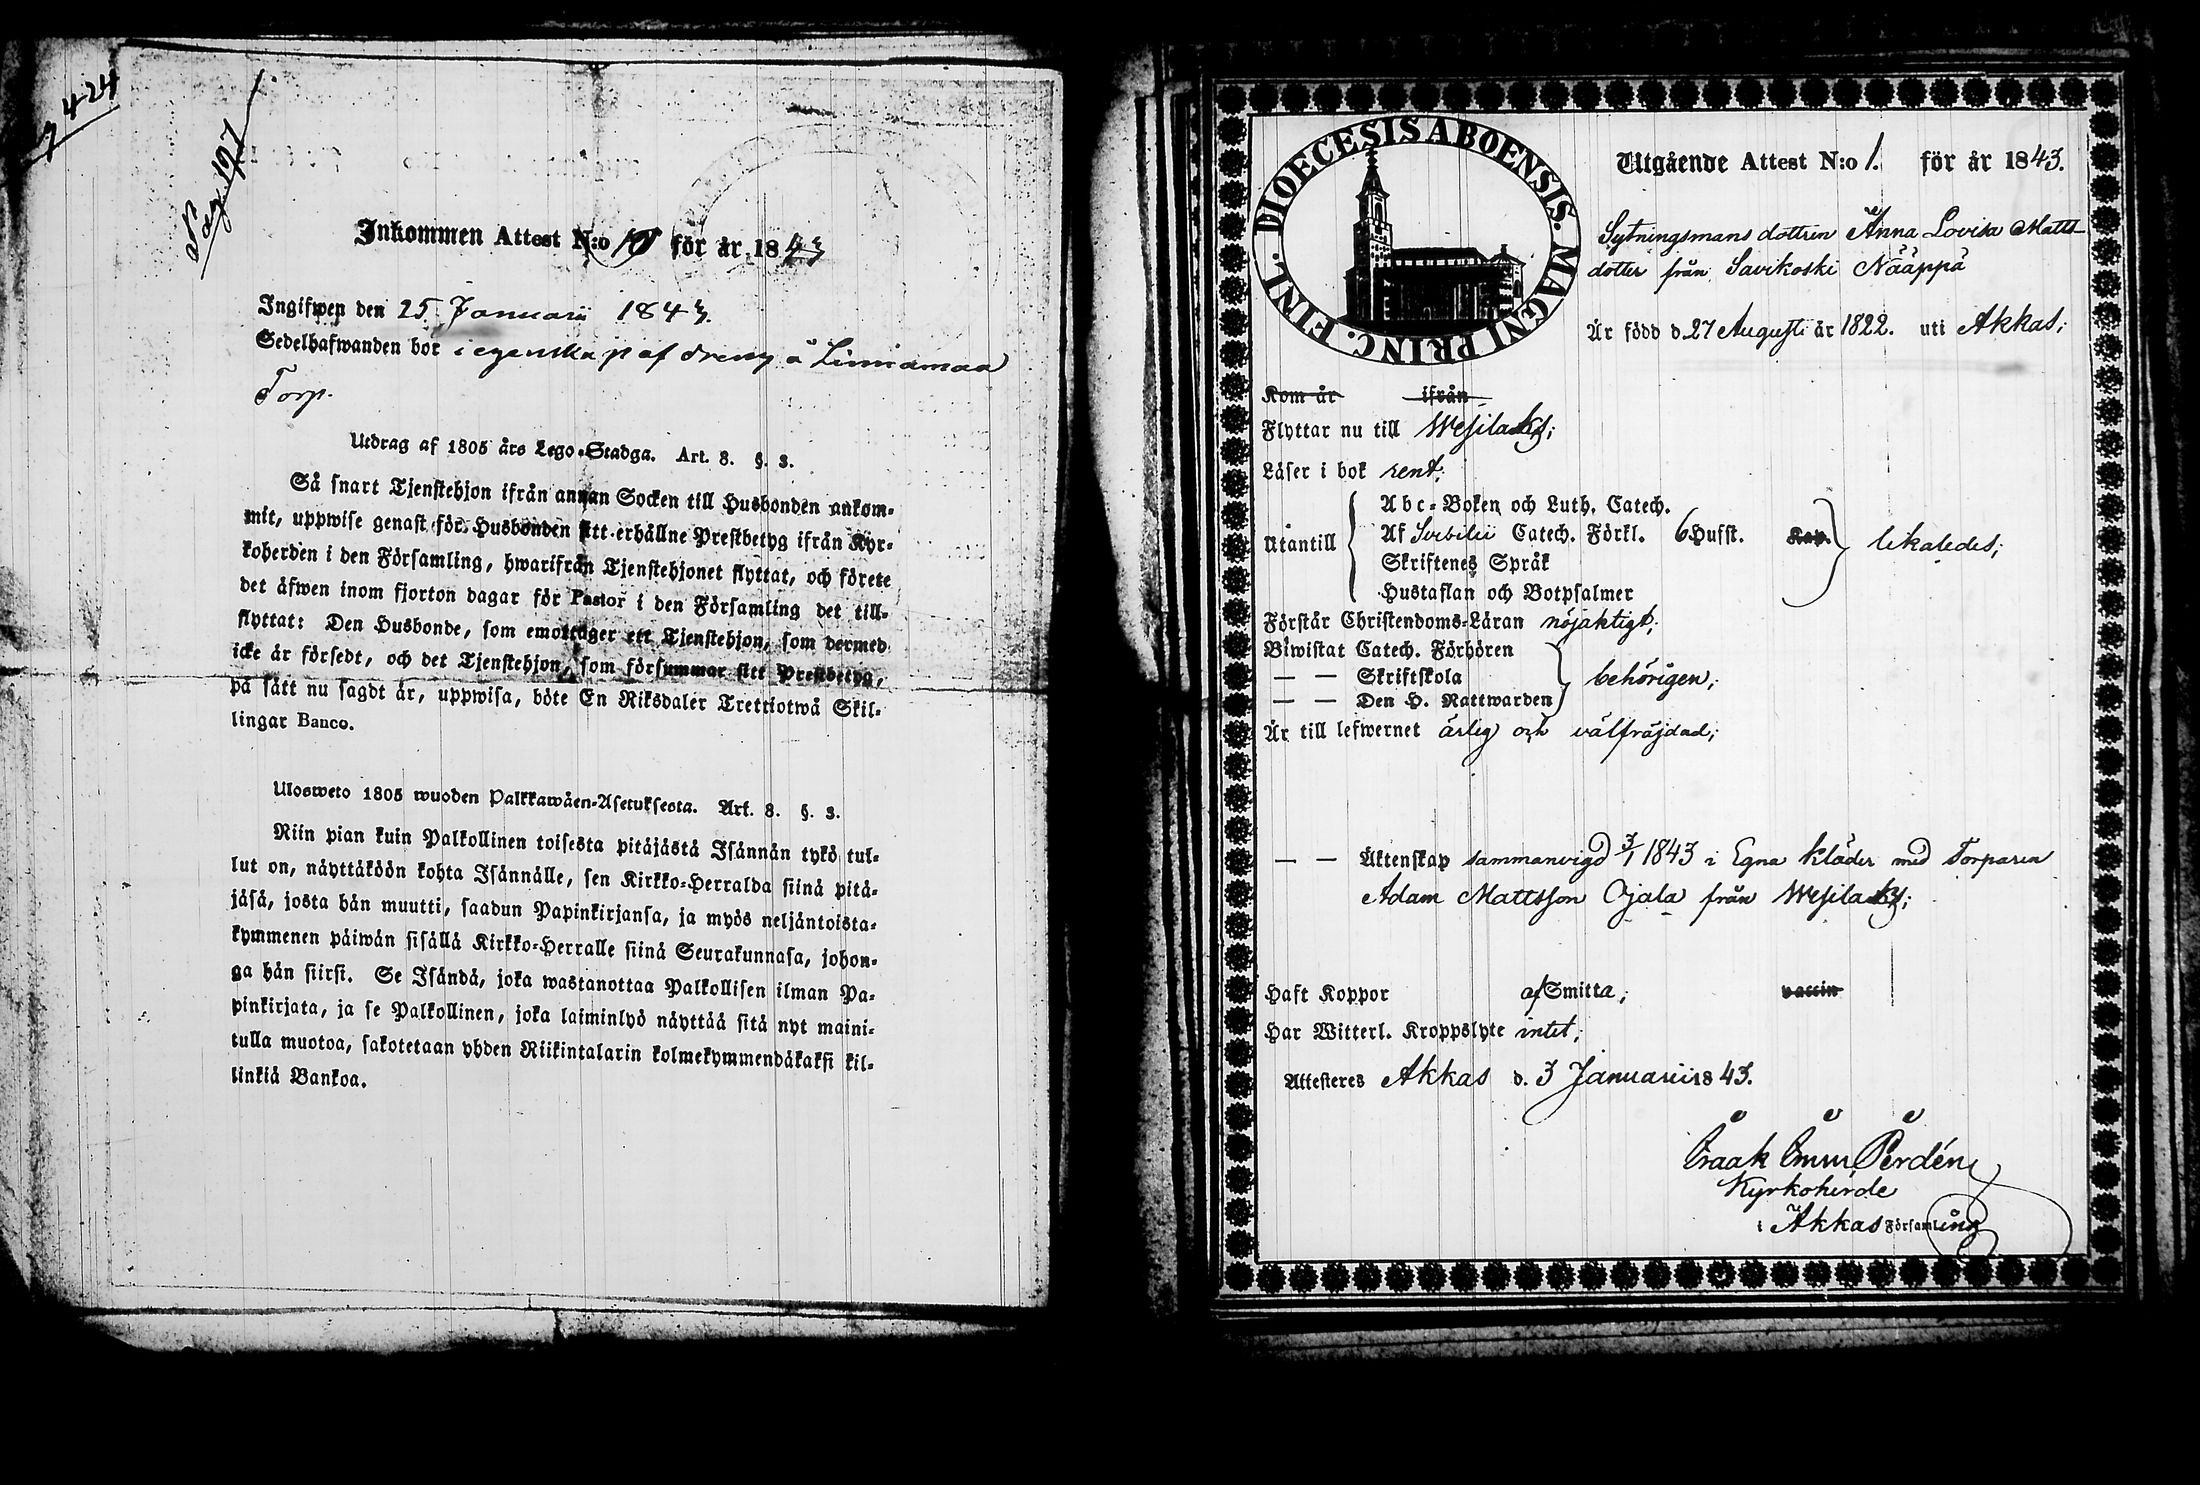 424
Pag. 197
Inkommen Attest N:o 10 för år 1843
Ingifwen den 25 Januarii 1843.
Sedelhafwanden bor i egenskap af dreng å Linnamaa
Torp.
Utdrag af 1805 års Lego-Stadga. Art. 8. §. 3.
Så snart Tjenstehjon ifrån annan Socken till Husbonden ankom-
mit, uppwise genast för Husbonden sitt erhållne Prestbetyg ifrån Kyr-
koherden i den Församling, hwarifrån Tjenstehjonet flyttat, och förete
det äfwen inom fjorton dagar för Pastor i den Församling det till-
flyttat: Den Husbonde, som emottager ett Tjenstehjon, som dermed
icke är försedt, och det Tjenstehjon, som försummar sitt Prestbetyg,
på sätt nu sagdt är, uppwisa, böte En Riksdaler Trettiotwå Skil-
lingar Banco.
Ulosweto 1805 wuoden Palkkawäen-Asetuksesta. Art. 8. §. 3.
Niin pian kuin Palkollinen toisesta pitäjästä Isännän tykö tul-
lut on, näyttäköön kohta Isännälle, sen Kirkko-Herralda siinä pitä-
jäsä, josta hän muutti, saadun Papinkirjansa, ja myös neljäntoista-
kymmenen päiwän sisällä Kirkko-Herralle siinä Seurakunnasa, johon-
ga hän siirsi. Se Isändä, joka wastanottaa Palkollisen ilman Pa-
pinkirjata, ja se Palkollinen, joka laiminlyö näyttää sitä nyt maini-
tulla muotoa, sakotetaan yhden Riikintalarin kolmekymmendäkaksi kil-
linkiä Bankoa.
DIOECESIS ABOENSIS. MAGNI PRINC. FINL.
Utgående Attest N:o 1. för år 1843.
Sytningsmans dottren Anna Lovisa Matts-
dotter från Savikoski Nääppä
Är född d. 27 Augusti år 1822. uti Akkas;
Kom år ifrån
Flyttar nu till Wesilaks;
Läser i bok rent;
Abc-Boken och Luth. Catech.
Utantill Af Svebilii Catech. Förkl. 6 Hufst. Kap. likaledes;
Skriftenes Språk
Hustaflan och Botpsalmer
Förstår Christendoms-Läran nöjaktigt;
Biwistat Catech. Förhören
— — Skriftskola behörigen;
— — Den H. Nattwarden
Är till lefwernet ärlig och välfräjdad;
— — Äktenskap sammanvigd 3/1 1843 i Egna kläder med Torparen
Adam Mattsson Ojala från Wesilaks;
Haft Koppor af Smitta; vaccin
Har Witterl. Kroppslyte intet;
Attesteres Akkas d. 3 Januarii 1843.
Isaak Emm. Perdén
Kyrkoherde
i Akkas Församling